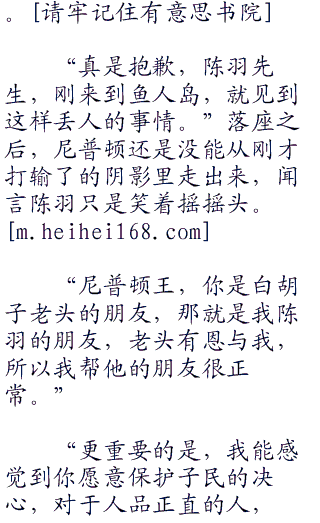 。[请牢记住有意思书院]
“真是抱歉，陈羽先
生，刚来到鱼人岛，就见到
这样丢人的事情。”落座之
后，尼普顿还是没能从刚才
打输了的阴影里走出来，闻
言陈羽只是笑着摇摇头。
[m.heihei168.com]
“尼普顿王，你是白胡
子老头的朋友，那就是我陈
羽的朋友，老头有恩与我，
所以我帮他的朋友很正
常。”
“更重要的是，我能感
觉到你愿意保护子民的决
心，对于人品正直的人，